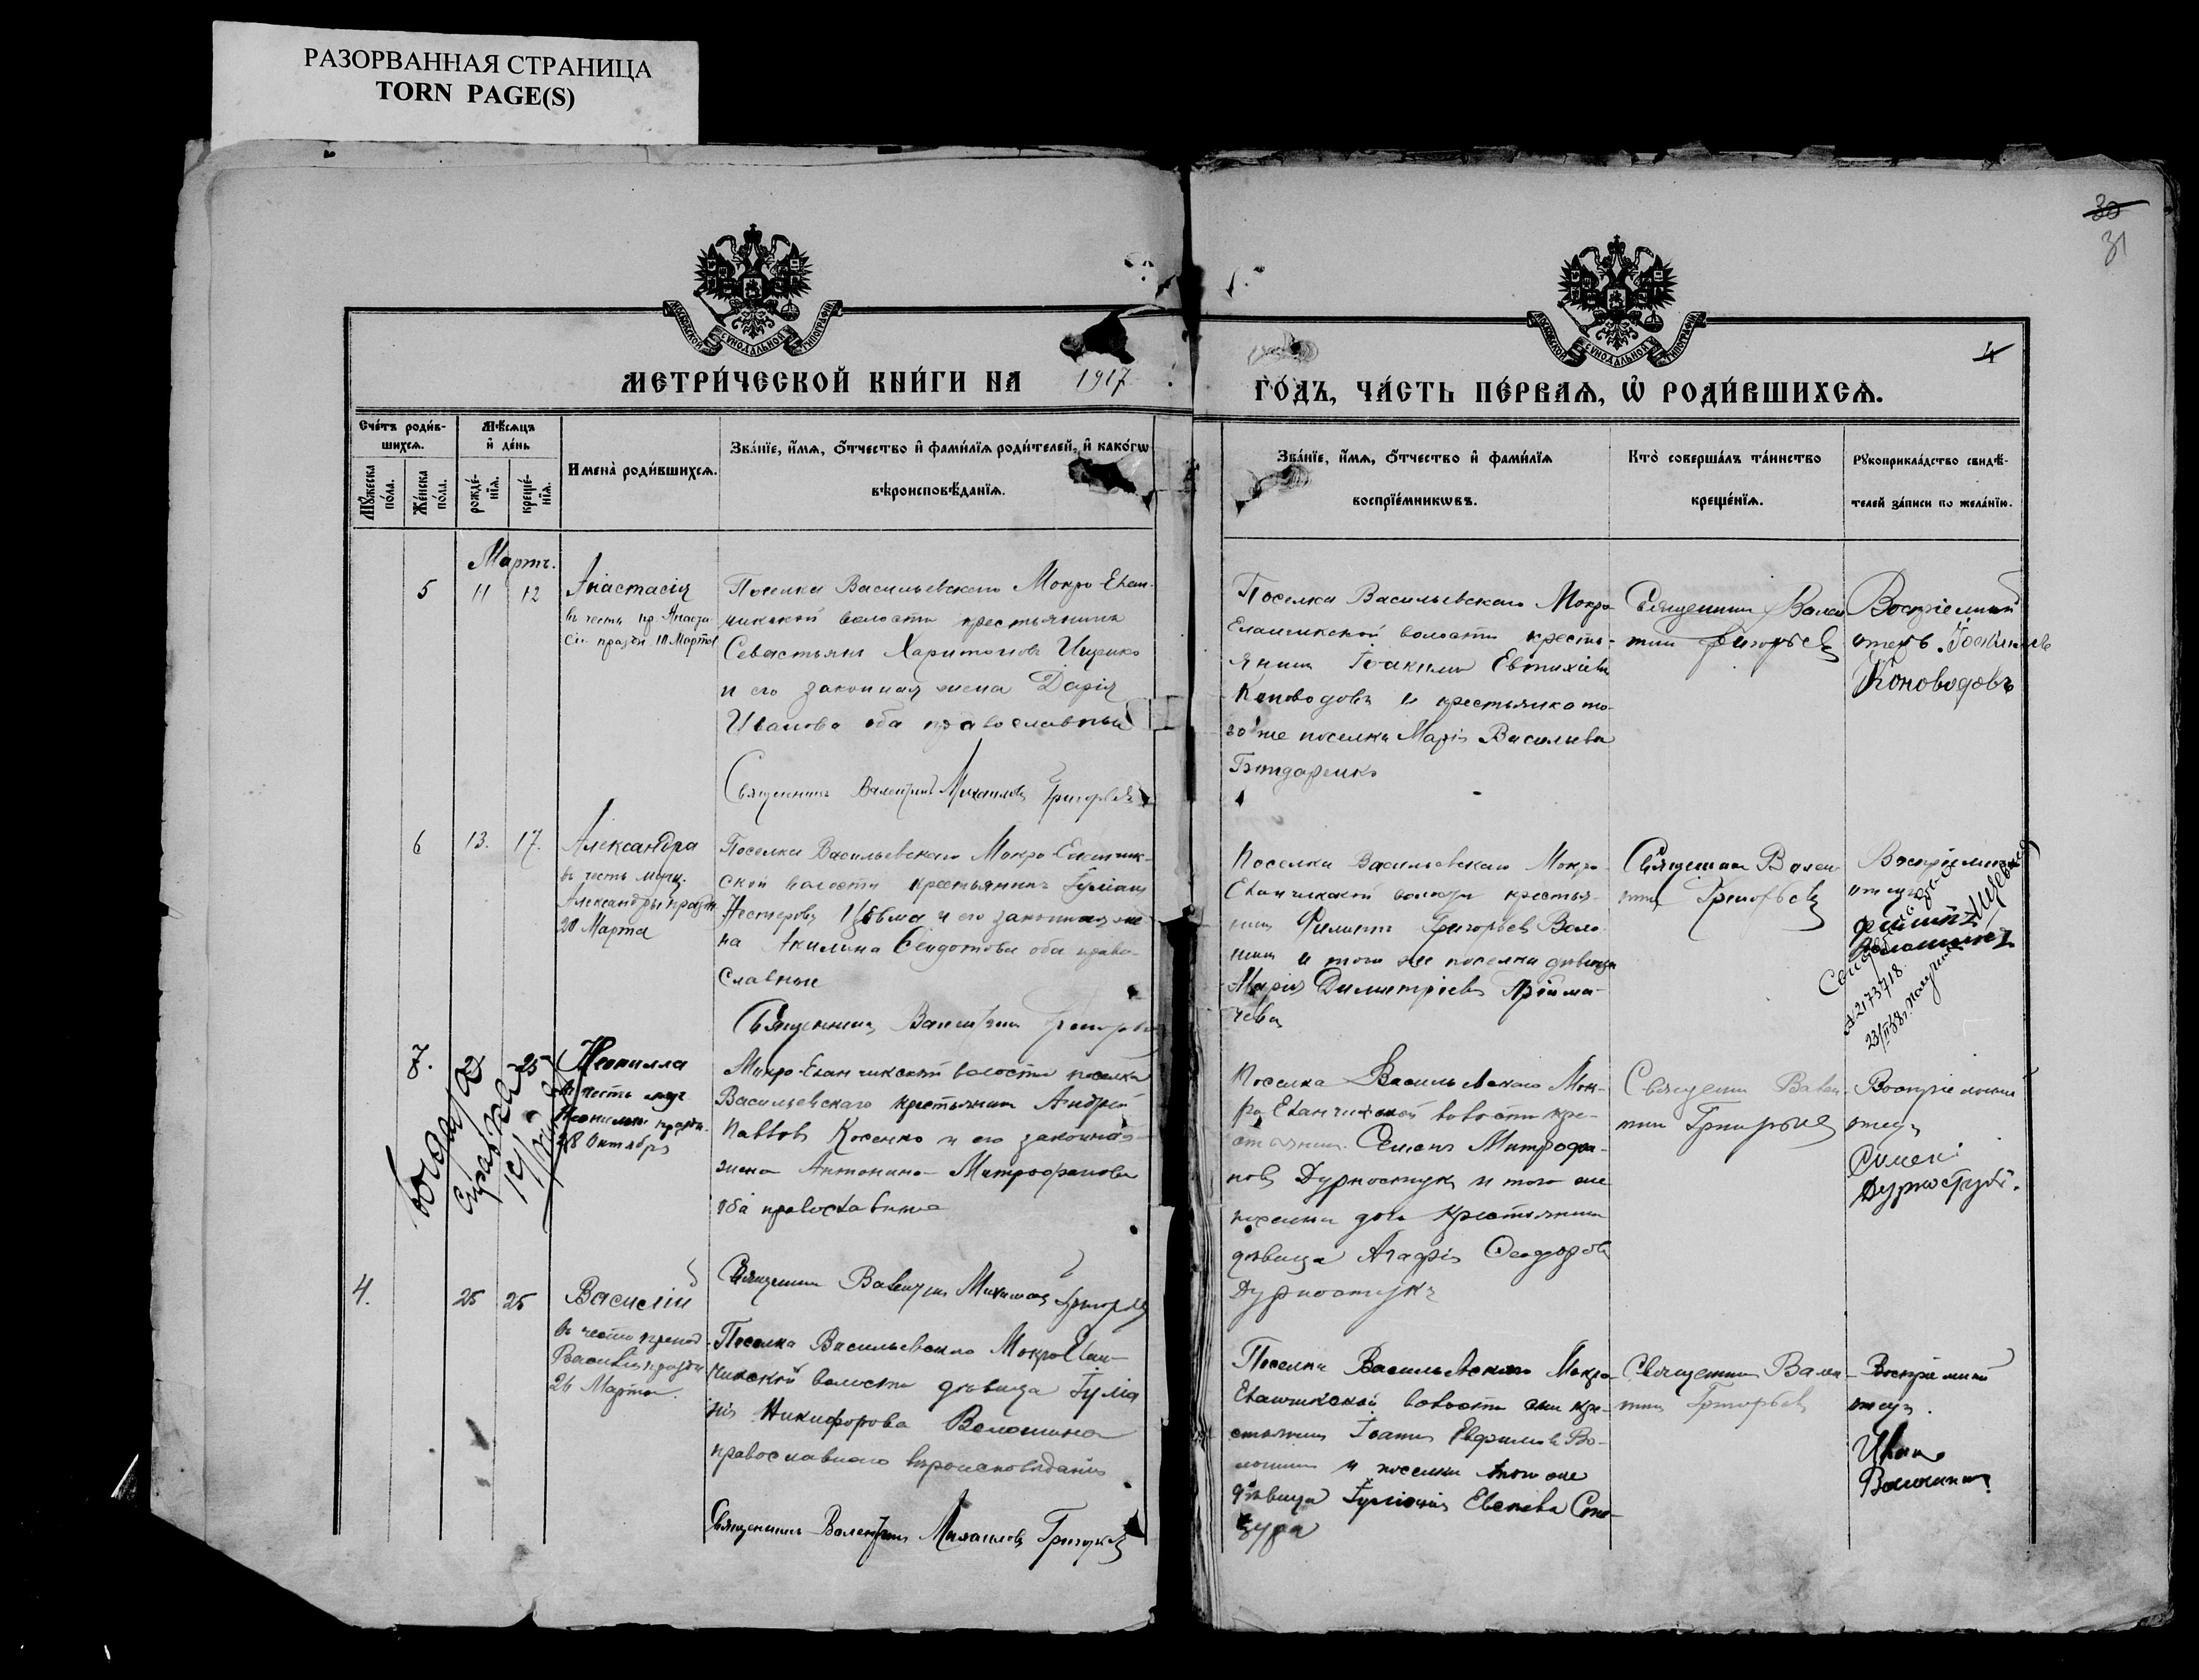 РАЗОРВАННАЯ СТРАНИЦА
TORN PAGE(S)
30
31
4
МОСКОВСКОЙ СѴНОДАЛЬНОЙ ТИПОГРАФІИ
МОСКОВСКОЙ СѴНОДАЛЬНОЙ ТИПОГРАФІИ
МЕТРИ́ЧЕСКОЙ КНИ́ГИ НА 1917 ГО́ДЪ, ЧА́СТЬ ПЕ́РВАѦ, Ѽ РОДИ́ВШИХСѦ.
Сче́тъ роди́в-
шихсѧ.
Мꙋ́жеска
по́ла.
Же́нска
по́ла.
Мѣ́сѧцъ
и҆ де́нь
рожде́-
нїѧ.
креще́-
нїѧ.
Имена̀ роди́вшихсѧ.
Зва́нїе, и҆́мѧ, ѻ҆́тчество и҆ фами́лїѧ роди́телей, и҆ како́гѡ
вѣроисповѣ́данїѧ.
Зва́нїе, и҆́мѧ, ѻ҆́тчество и҆ фами́лїѧ
воспрїе́мникѡвъ.
Кто̀ соверша́лъ та́инство
креще́нїѧ.
Рꙋкоприкла́дство свидѣ́-
телей за́писи по жела́нїю.
Мартъ.
5 11 12
Анастасія
въ честь пр. Анаста-
сіи праздн. 10 Марта
Поселка Васильевскаго Мокро-Елан-
чикской волости крестьянинъ
Севастьянъ Харитоновъ Ищенко
и его законная жена Дарія
Иванова оба православные
Священникъ Валентинъ Михаиловъ Григорьевъ
Поселка Васильевскаго Мокро
Еланчикской волости кресть-
янинъ Іоакимъ Евтихіевъ
Коноводовъ и крестьянка то-
го же поселка Марія Васильева
Бондаренко
Священникъ Вален
тинъ Григорьевъ
Воспріемный
отецъ. Іоакимъ
Коноводовъ
6 13. 17.
Александра
въ честь муч.
Александры праздн.
20 Марта
Поселка Васильевскаго Мокро-Еланчик-
ской волости крестьянинъ Іуліанъ
Нестеровъ и его законная же
на Акилина Феодотова оба право-
славные
Священникъ Валентинъ Григорьевъ
Поселка Васильевскаго Мокро
Еланчикской волости крестья-
нинъ Филиппъ Григорьевъ Воло
шинъ и того же поселка дѣвица
Марія Димитріева
чева
Священникъ Вален
тинъ Григорьевъ
Воспріемный
отецъ
Филиппъ
Волошинъ
23/II 58г. получила
7. 25
Неонилла
въ честь муч
Неониллы праздн.
28 Октября
Мокро-Еланчикской волости поселка
Васильевскаго крестьянинъ Андрей
Павловъ Косенко и его законная
жена Антонина Митрофанова
оба православные
Священникъ Валентинъ Михаиловъ Григорьевъ
выдана
справка
Поселка Васильевскаго Мок-
ро Еланчикской волости кре-
стьянинъ Семенъ Митрофа-
новъ Дурностукъ и того же
поселка дочь крестьянина
дѣвица Агафія Феодорова
Дурностукъ
Священникъ Вален
тинъ Григорьевъ
Воспріемный
отецъ
Семенъ
Дурностукъ.
4. 25 25
Василій
въ честь препод
Василія праздн
26 Марта.
Поселка Васильевскаго Мокро Елан-
чикской волости дѣвица Іуліа
нія Никифорова Волошина
православнаго вѣроисповѣданія
Священникъ Валентинъ Михаиловъ Григорьевъ
Поселка Васильевскаго Мокро
Еланчикской волости кре-
стьянинъ Іоаннъ Ефимовъ Во-
лошинъ и поселка того же
дѣвица Іуліанія
Священникъ Вален
тинъ Григорьевъ
Воспріемный
отецъ.
Иванъ
Волошинъ